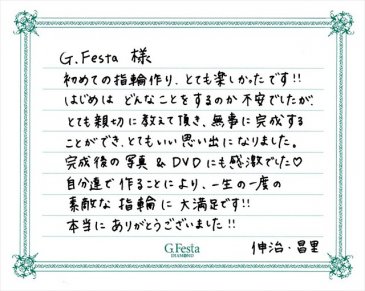 G.Festa 様
初めての指輪作り、とても楽しかったです!!
はじめは どんなことをするのか不安でしたが、
とても親切に教えて頂き、無事に完成する
ことができ、とてもいい思い出になりました。
完成後の写真&DVDにも感激でした♡
自分達で作ることにより、一生の一度の
素敵な指輪に大満足です!!
本当に ありがとうございました!!
伸治・昌里
G.Festa
DIAMOND